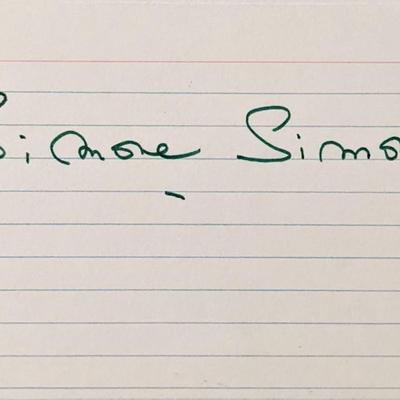 Simone Simo